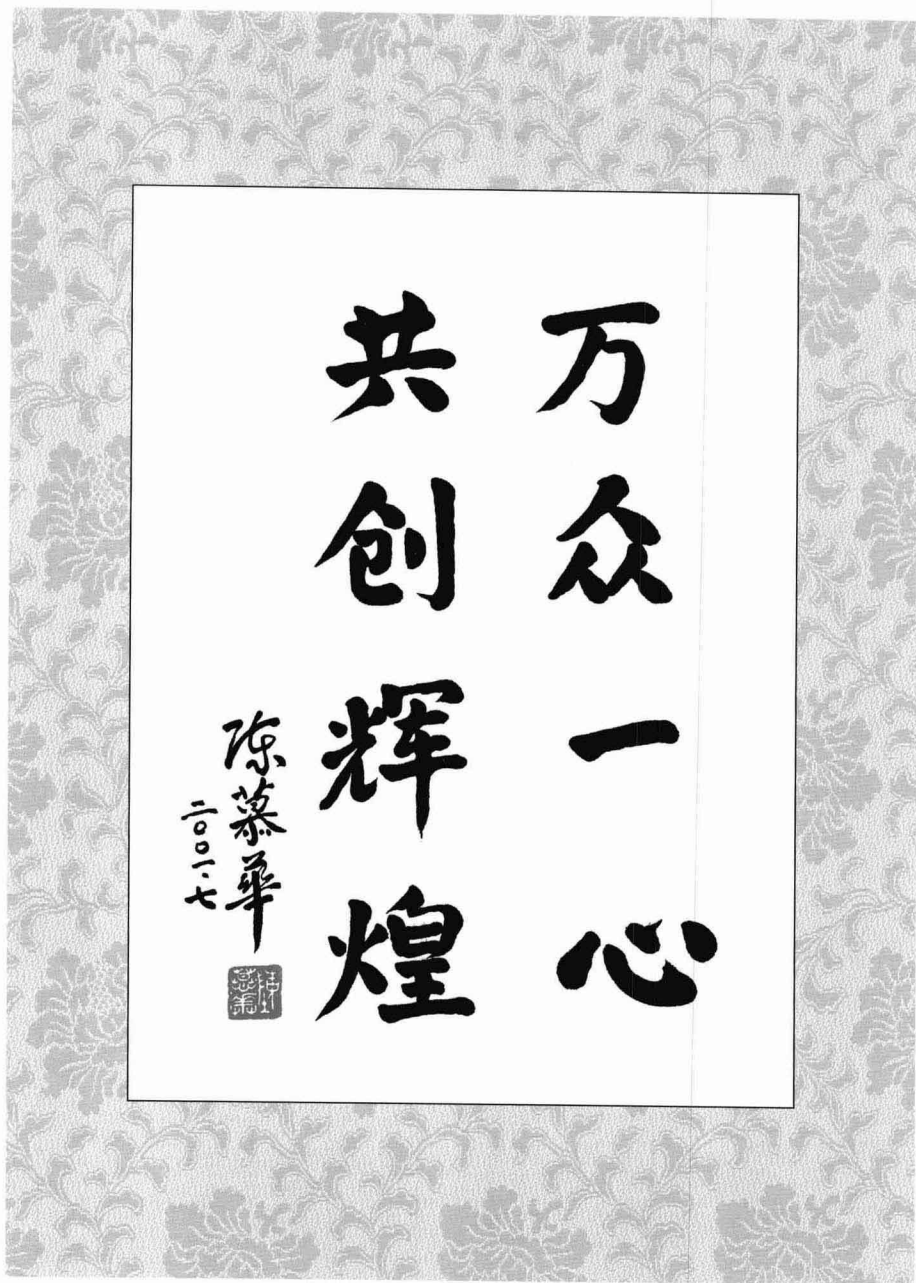 万众一心
共创辉煌
陈慕華
二〇〇一·七